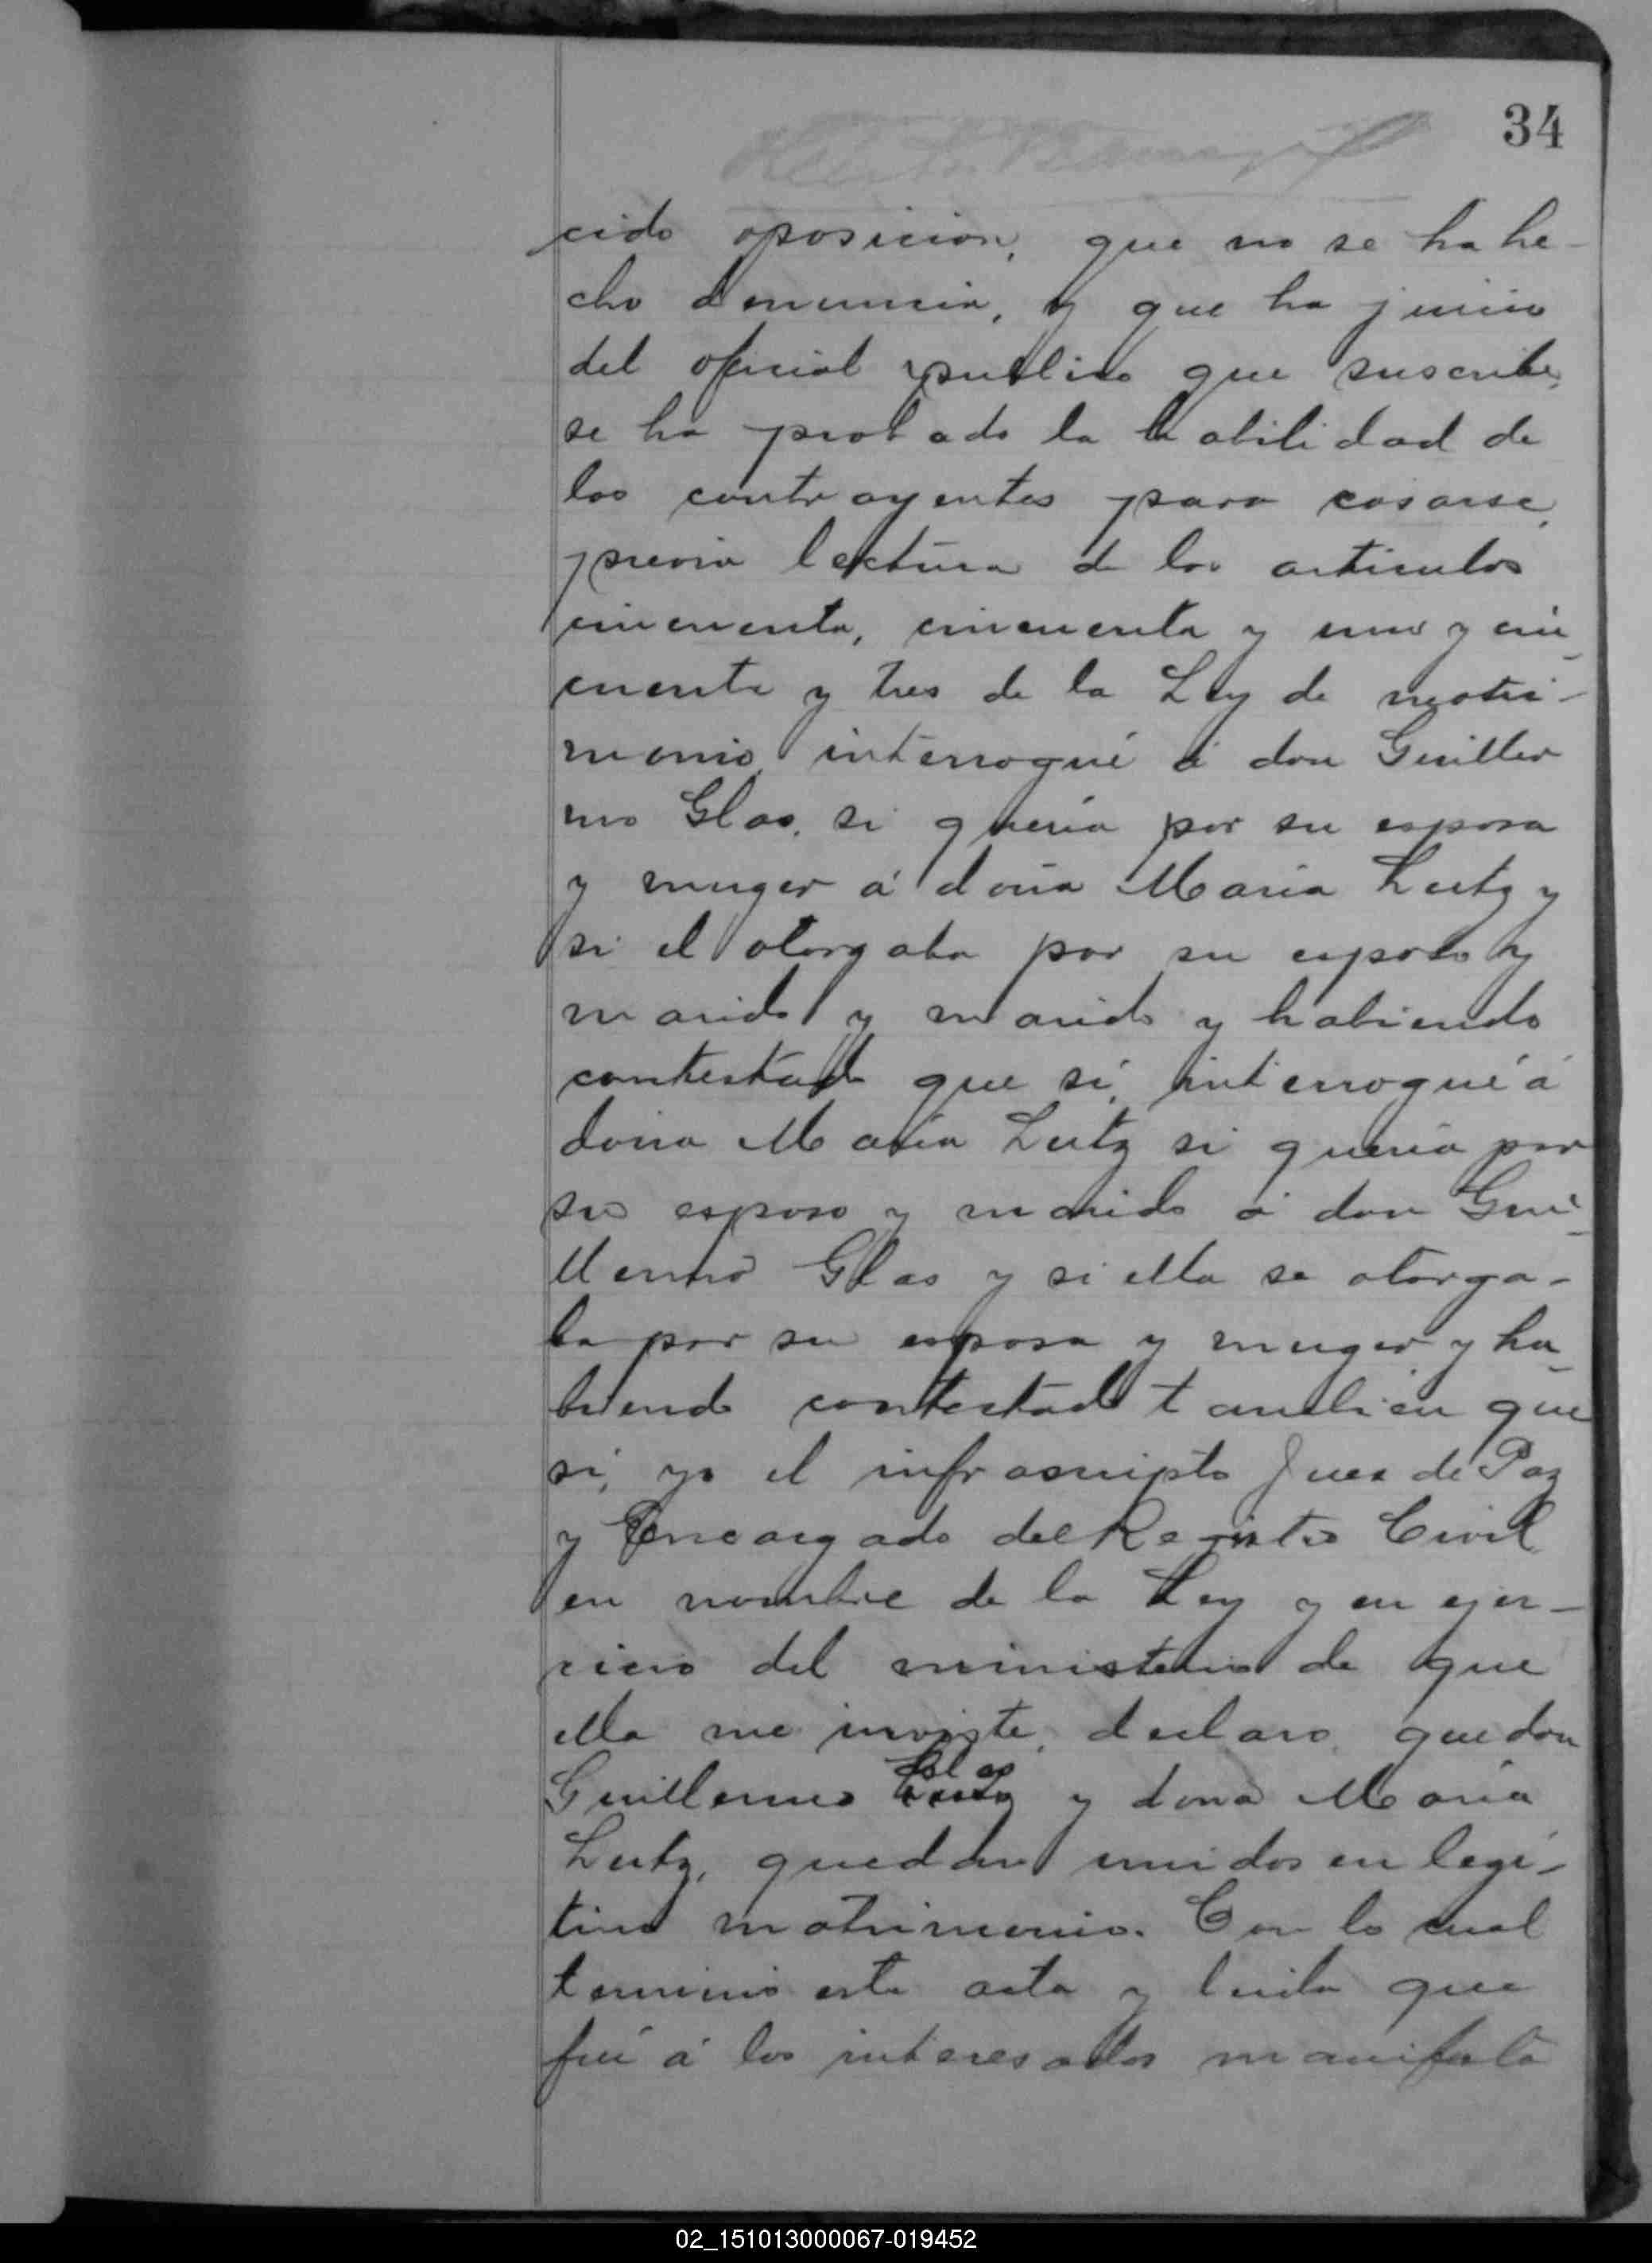 34
cido oposición, que no se ha he-
cho denuncia, y que ha juicio
del oficial publico que suscribe,
se ha probado la habilidad de
los contrayentes para casarse,
previa lectura de los articulos
cincuenta, cincuenta y uno y cin-
cuenta y tres de la Ley de matri-
monio, interrogué á don Guiller
mo Glas, si quería por su esposa
y muger á doña María Lutz y
si el otorgaba por su esposo y
marido y marido y habiendo
contestado que sí, interrogué á
doña María Lutz si quería por
su esposo y marido á don Gui-
llermo Glas y si ella se otorga-
ba por su esposa y muger y ha-
biendo contestado tambien que
sí, yo el infrascripto Juez de Paz
y Encargado del Registro Civil
en nombre de la Ley y en ejer-
cicio del ministerio de que
ella me inviste, declaro, que don
Glas
Guillermo Lutz y doña María
Lutz, quedan unidos en legi-
timo matrimonio. Con lo cual
terminó esta acta y leida que
fué á los interesados manifestó
02_151013000067-019452